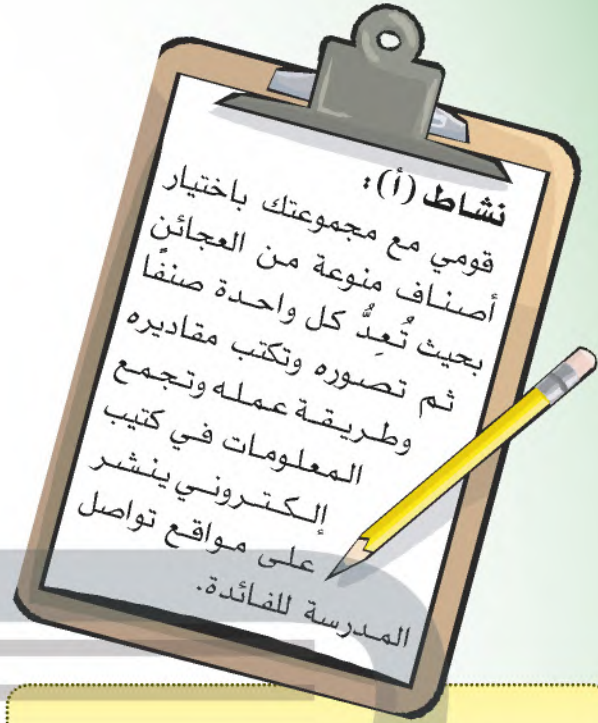 نشاط (أ):
قومي مع مجموعتك باختيار
أصناف منوعة من العجائن
بحيث تُعِدُّ كل واحدة صنفًا
ثم تصوره وتكتب مقاديره
وطريقة عمله وتجمع
المعلومات في كتيب
إلكتروني ينشر
على مواقع تواصل
المدرسة للفائدة.